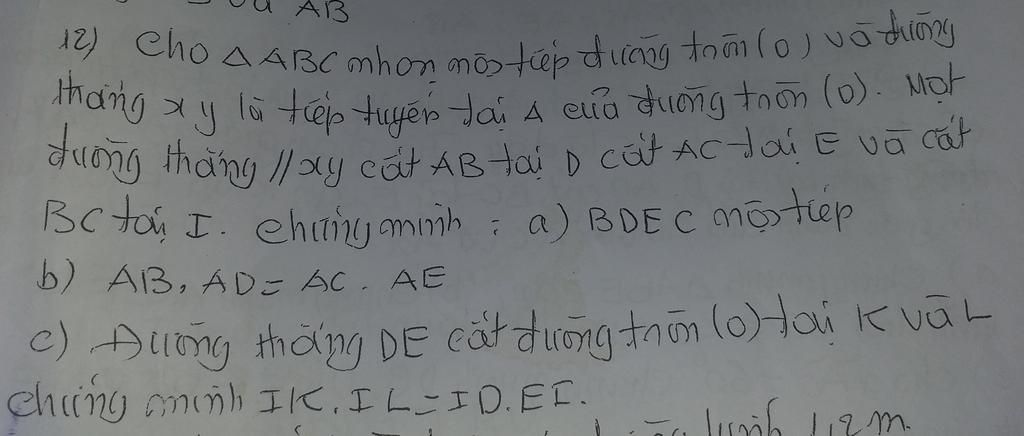 AB
12) Cho △ABC nhọn nội tiếp đường tròn (O) và đường
thẳng xy là tiếp tuyến tại A của đường tròn (O). Một
đường thẳng // xy cắt AB tại D cắt AC tại E và cắt
BC tại I. Chứng minh : a) BDEC nội tiếp
b) AB, AD = AC . AE
c) Đường thẳng DE cắt đường tròn (O) tại K và L
Chứng minh IK. IL = ID. EI.
1,2m.